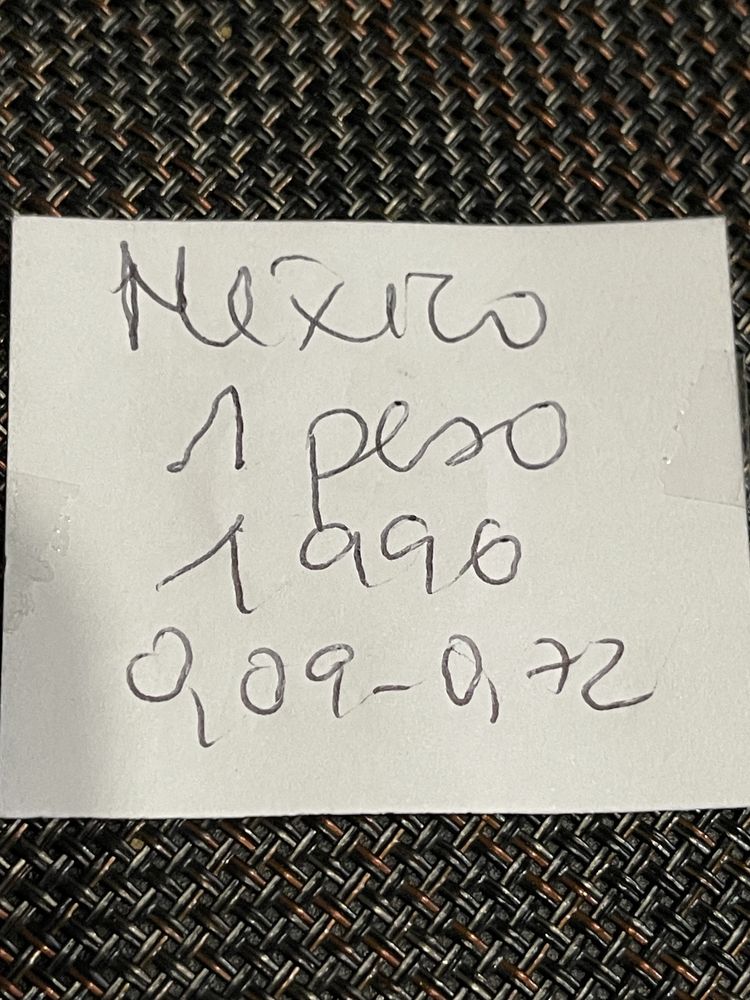 Mexico
1 peso
1990
0,09-0,72